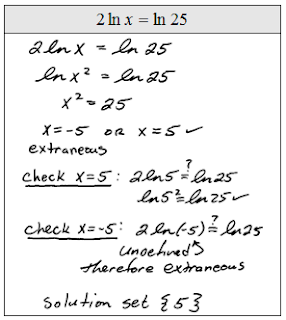 2 ln x = ln 25
2 ln x = ln 25
ln x² = ln 25
x² = 25
x = -5 or x = 5 ✓
extraneous
check x=5 : 2 ln 5 ≟ ln 25
ln 5² ≟ ln 25 ✓
check x=-5 : 2 ln(-5) ≟ ln 25
undefined
therefore extraneous
Solution set {5}